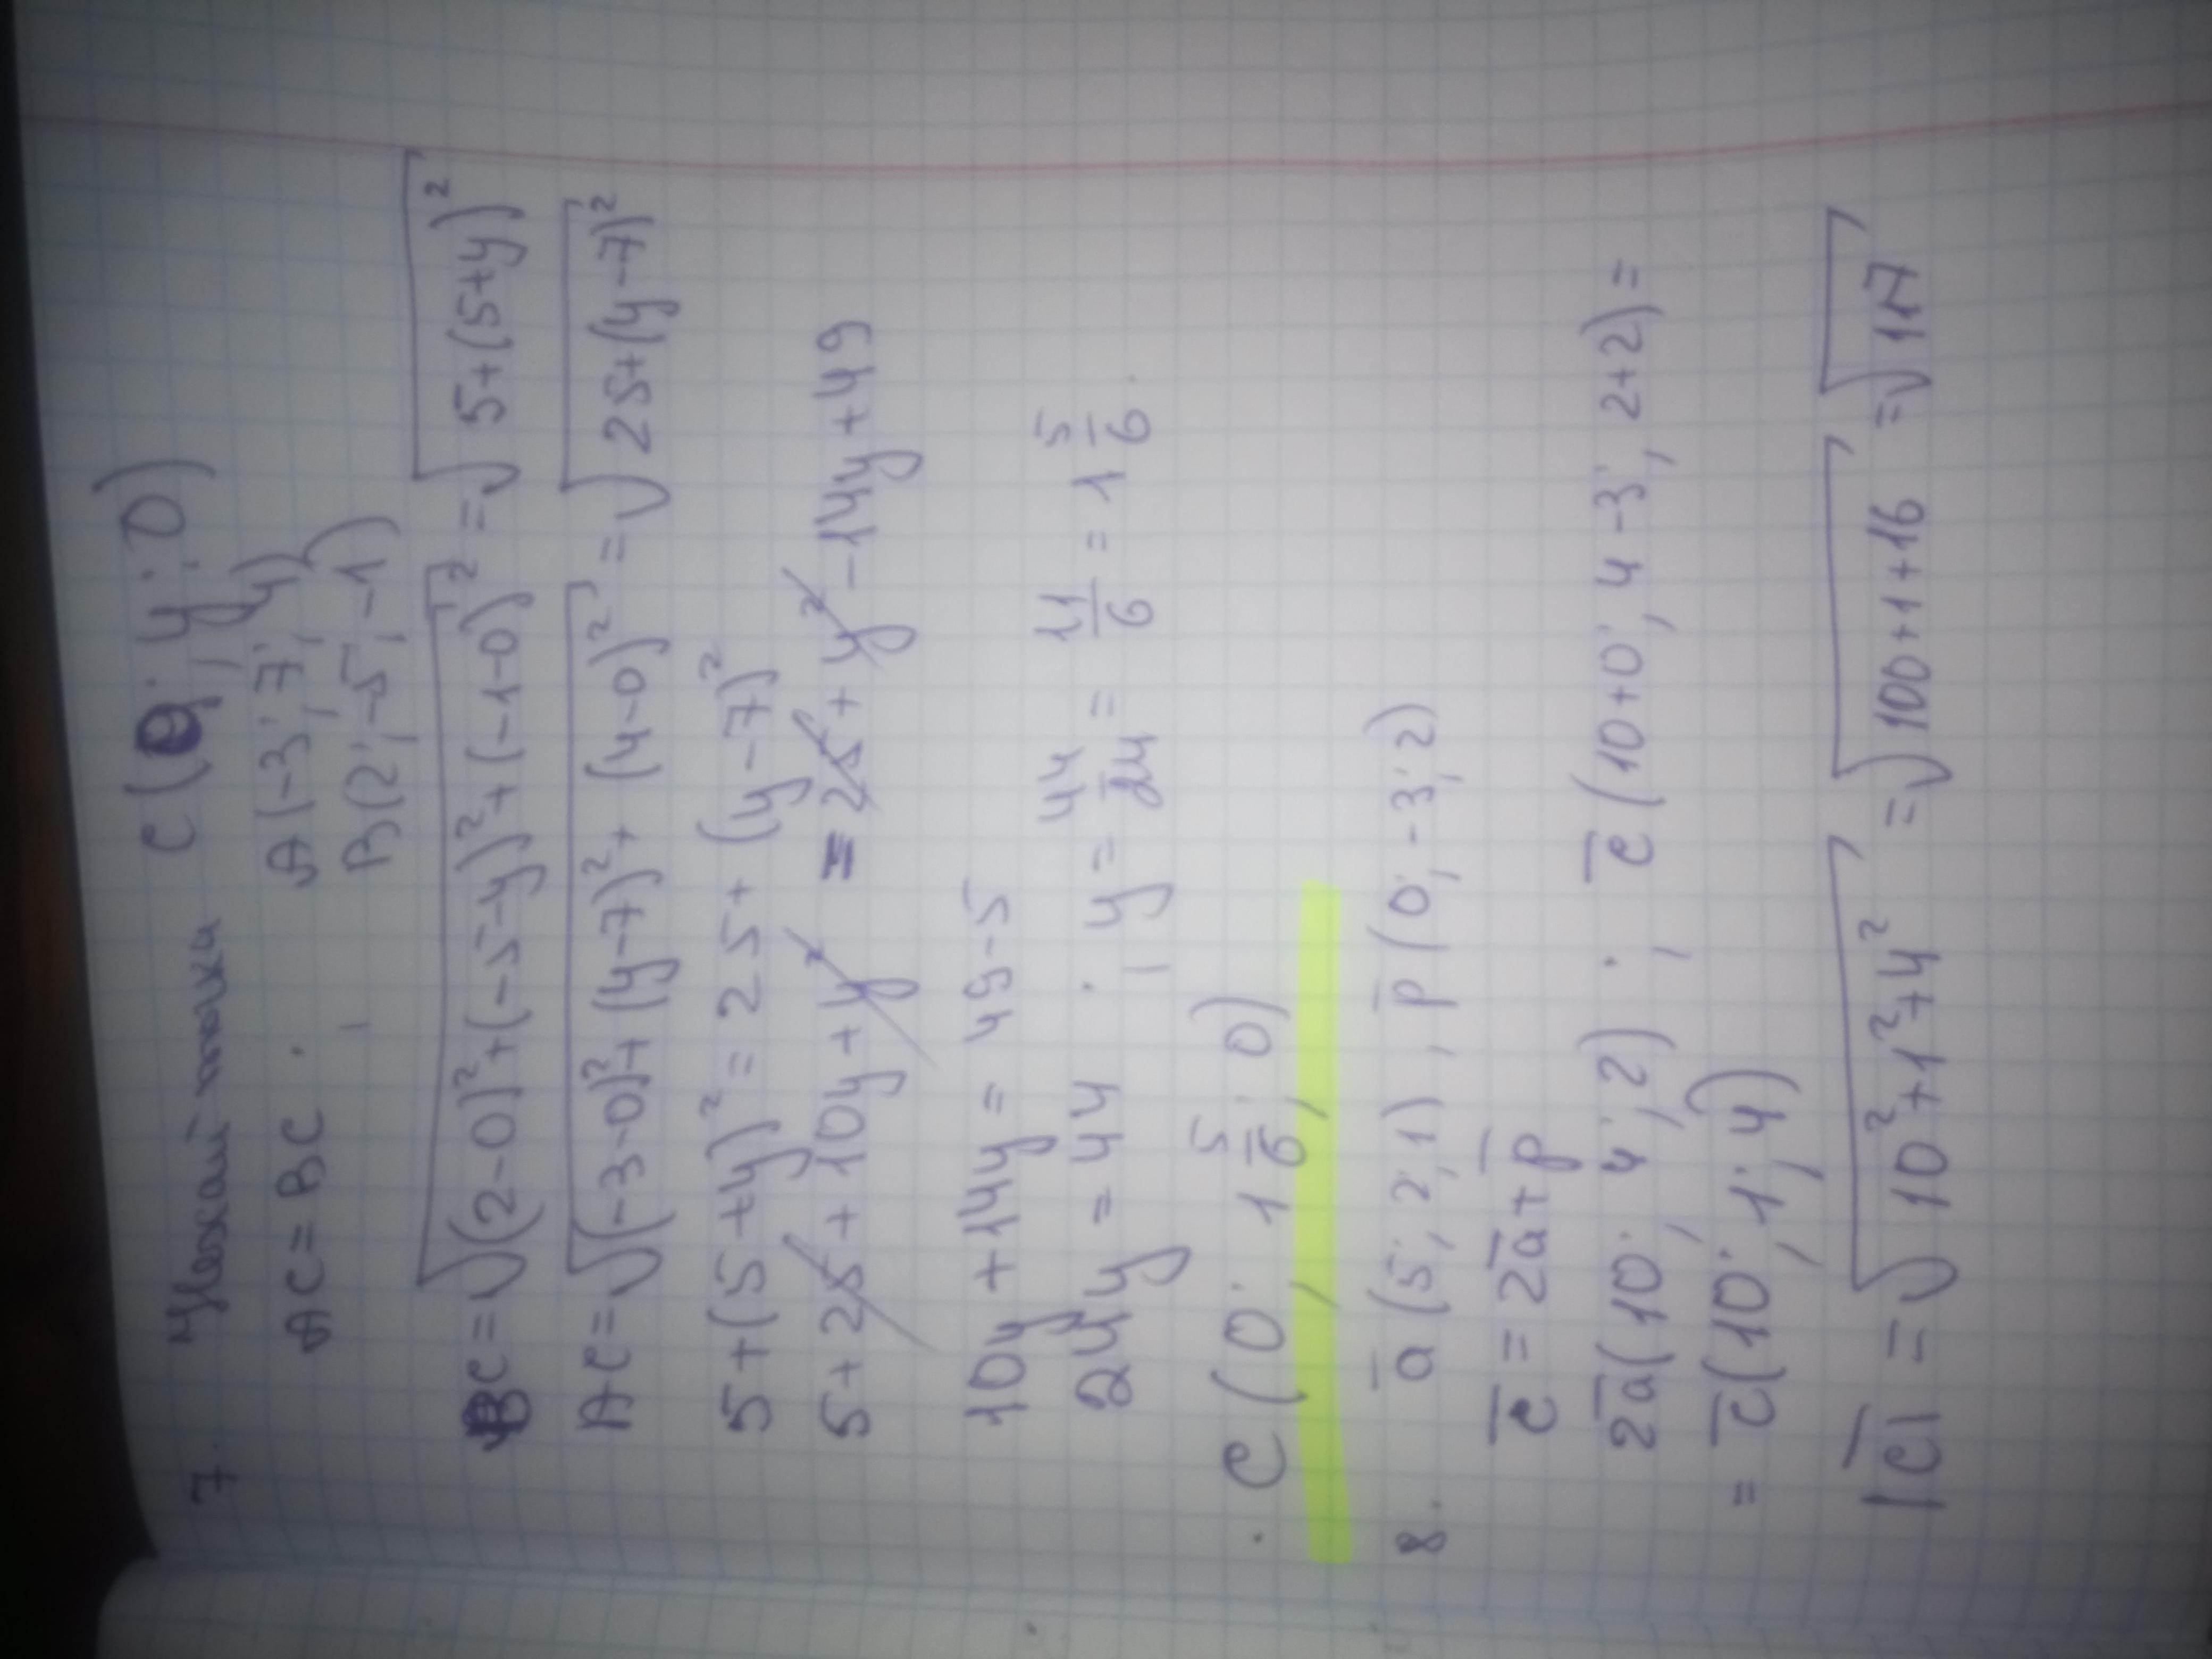 7. Нехай точка C(0; y; 0)
AC = BC; A(-3; 7; 4)
B(2; -5; -1)
BC = √((2-0)²+(-5-y)²+(-1-0)²) = √(5+(5+y)²)
AC = √((-3-0)²+(y-7)²+(4-0)²) = √(25+(y-7)²)
5+(5+y)² = 25+(y-7)²
5+25+10y+y² = 25+y²-14y+49
10y+14y = 49-5
24y = 44; y = 44/24 = 11/6 = 1 5/6.
C(0; 1 5/6; 0)
8. a̅(5; 2; 1), p̅(0; -3; 2)
c̅ = 2a̅+p̅
2a̅(10; 4; 2); c̅(10+0; 4-3; 2+2) =
= c̅(10; 1; 4)
|c̅| = √(10²+1²+4²) = √(100+1+16) = √117